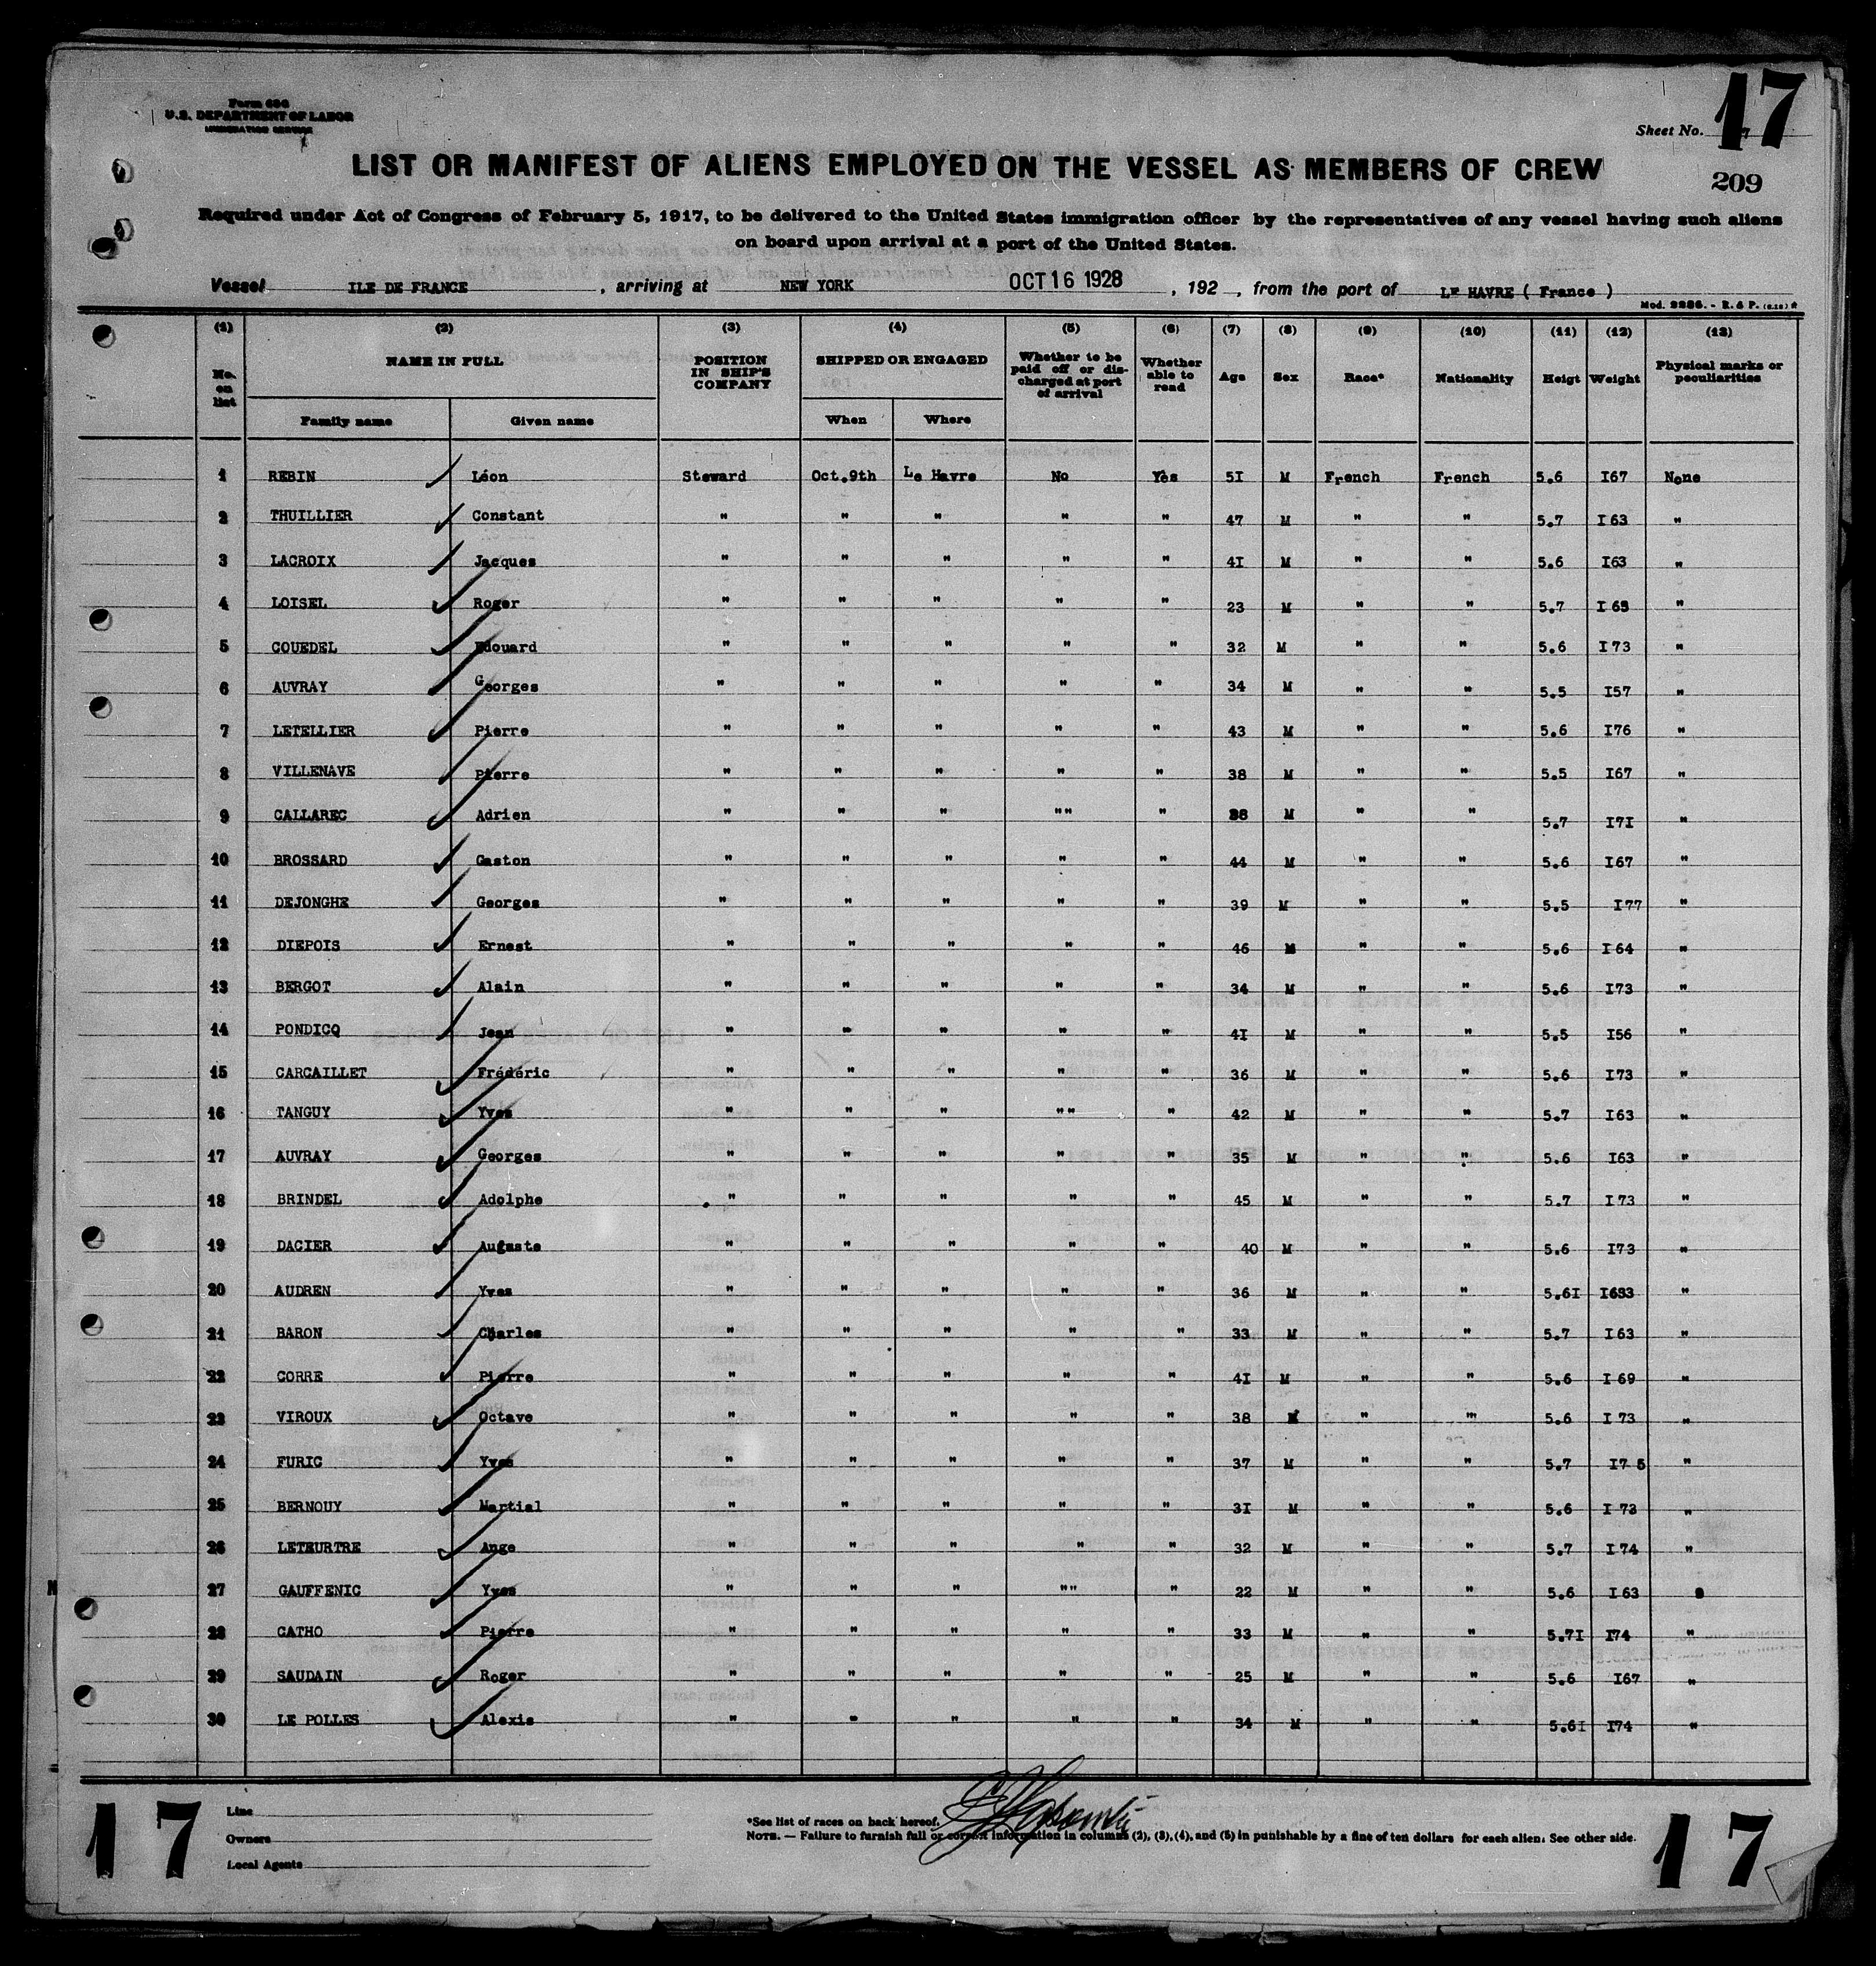 Form 686
U.S. DEPARTMENT OF LABOR
IMMIGRATION SERVICE
Sheet No. 17
209
LIST OR MANIFEST OF ALIENS EMPLOYED ON THE VESSEL AS MEMBERS OF CREW
Required under Act of Congress of February 5, 1917, to be delivered to the United States immigration officer by the representatives of any vessel having such aliens
on board upon arrival at a port of the United States.
Vessel ILE DE FRANCE, arriving at NEW YORK OCT 16 1928, 192 , from the port of LE HAVRE ( France )
Mod. 2286. - R. & P.
(1) (2) (3) (4) (5) (6) (7) (8) (9) (10) (11) (12) (13)
No. on list NAME IN FULL Family name Given name POSITION IN SHIP'S COMPANY SHIPPED OR ENGAGED When Where Whether to be paid off or discharged at port of arrival Whether able to read Age Sex Race* Nationality Heigt Weight Physical marks or peculiarities
1 REBIN Léon Steward Oct.9th Le Havre No Yes 5I M French French 5.6 I67 None
2 THUILLIER Constant " " " " " 47 M " " 5.7 I63 "
3 LACROIX Jacques " " " " " 4I M " " 5.6 I63 "
4 LOISEL Roger " " " " " 23 M " " 5.7 I "
5 COUEDEL Edouard " " " " " 32 M " " 5.6 I73 "
6 AUVRAY Georges " " " " " 34 M " " 5.5 I57 "
7 LETELLIER Pierre " " " " " 43 M " " 5.6 I76 "
8 VILLENAVE Pierre " " " " " 38 M " " 5.5 I67 "
9 CALLAREC Adrien " " " "" " M " " 5.7 I7I "
10 BROSSARD Gaston " " " " " 44 M " " 5.6 I67 "
11 DEJONGHE Georges " " " " " 39 M " " 5.5 I77 "
12 DIEPOIS Ernest " " " " " 46 M " " 5.6 I64 "
13 BERGOT Alain " " " " " 34 M " " 5.6 I73 "
14 PONDICQ Jean " " " " " 4I M " " 5.5 I56 "
15 CARCAILLET Frédéric " " " " " 36 M " " 5.6 I73 "
16 TANGUY Yves " " " "" " 42 M " " 5.7 I63 "
17 AUVRAY Georges " " " " " 35 M " " 5.6 I63 "
18 BRINDEL Adolphe " " " " " 45 M " " 5.7 I73 "
19 DACIER Auguste " " " " " 40 M " " 5.6 I73 "
20 AUDREN Yves " " " " " 36 M " " 5.6I "
21 BARON Charles " " " " " 33 M " " 5.7 I63 "
22 CORRE Pierre " " " " " 4I M " " 5.6 I69 "
23 VIROUX Octave " " " " " 38 M " " 5.6 I73 "
24 FURIC Yves " " " " " 37 M " " 5.7 I75 "
25 BERNOUY Martial " " " " " 3I M " " 5.6 I73 "
26 LETEURTRE Ange " " " " " 32 M " " 5.7 I74 "
27 GAUFFENIC Yves " " " "" " 22 M " " 5.6 I63
28 CATHO Pierre " " " " " 33 M " " 5.7I I74 "
29 SAUDAIN Roger " " " " " 25 M " " 5.6 I67 "
30 LE POLLES Alexis " " " " " 34 M " " 5.6I I74 "
17
Line
Owners
Local Agents
*See list of races on back hereof.
NOTE. — Failure to furnish full or correct information in columns (2), (3), (4), and (5) in punishable by a fine of ten dollars for each alien. See other side.
17